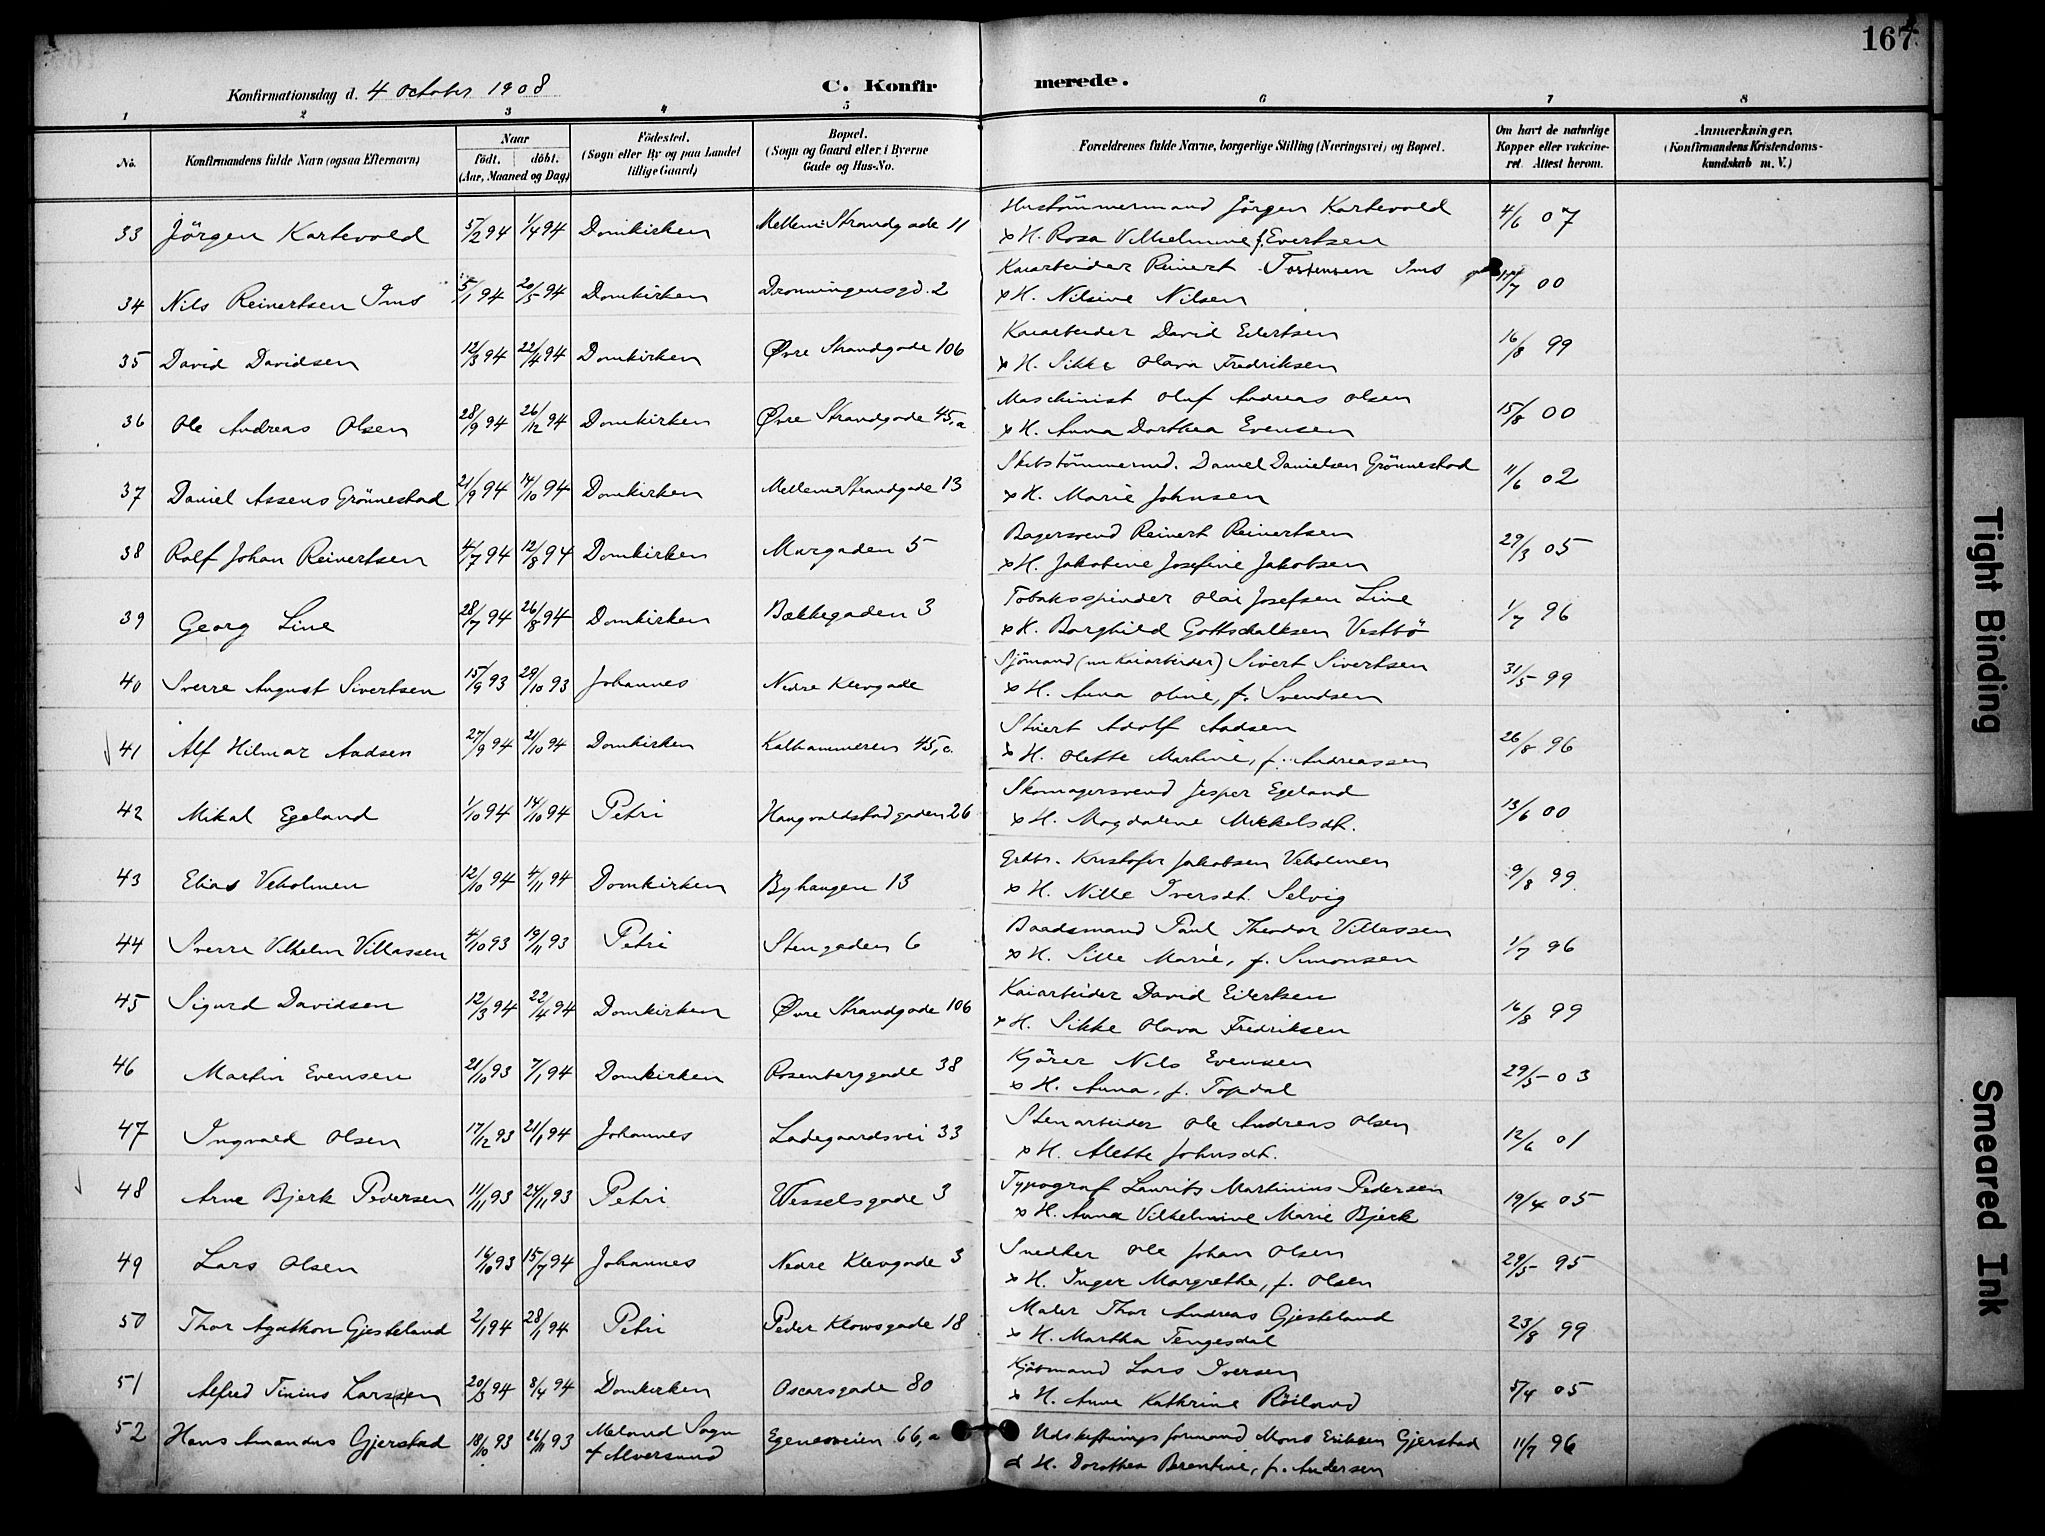 167
Konfirmationsdag d. 4 October 1908 C. Konfirmerede.
1 2 3 4 5 6 7 8
No. Konfirmandens fulde Navn (ogsaa Efternavn) Naar födt. döbt. (Aar, Maaned og Dag) Födested. (Sogn eller By og paa Landet tillige Gaard) Bopæl. (Sogn og Gaard eller i Byerne Gade og Hus-No. Forældrenes fulde Navne, borgerlige Stilling (Næringsvei) og Bopæl. Om havt de naturlige Kopper eller vaccineret. Attest herom. Anmærkninger. (Konfirmandens Kristendomskundskab m. V.)
33 Jörgen Kartevold 5/2 94 1/4 94 Domkirken Mellem Strandgade 11 Hustömmermand Jörgen Kartevold 4/6 07
x H. Rosa Vilhelmine f. Evertsen
34 Nils Reinertsen Ims 5/1 94 20/5 94 Domkirken Dronningensgd. 2 Kaiarbeider Reinert Torstensen Ims 17/7 00
x H. Nilsine Nilsen
35 David Davidsen 12/3 94 22/4 94 Domkirken Øvre Strandgade 106 Kaiarbeider David Eilertsen 16/8 99
x H. Sikke Olava Fredriksen
36 Ole Andreas Olsen 28/9 94 26/12 94 Domkirken Øvre Strandgade 45, a Maschinist Oluf Andreas Olsen 15/8 00
x H. Anna Dorthea Evensen
37 Daniel Assens Grönnestad 21/9 94 14/10 94 Domkirken Mellem Strandgade 13 Skibstömmermd. Daniel Danielsen Grönnestad 11/6 02
x H. Marie Johnsen
38 Ralf Johan Reinertsen 4/7 94 12/8 94 Domkirken Murgaden 5 Bagersvend Reinert Reinertsen 29/3 05
x H. Jakobine Josefine Jakobsen
39 Georg Line 28/7 94 26/8 94 Domkirken Bækkegaden 3 Tobaksspinder Olai Josefsen Line 1/7 96
x H. Borghild Gottschalksen Vestbö
40 Sverre August Sivertsen 15/9 93 29/10 93 Johannes Nedre Klevgade Sjömand (nu Kaiarbeider) Sivert Sivertsen 31/5 99
x H. Anna Oline, f. Svendsen
41 Alf Hilmar Aadsen 27/9 94 21/10 94 Domkirken Kalhammeren 45, c. Stuert Adolf Aadsen 26/8 96
x H. Olette Martine, f. Andreassen
42 Mikal Egeland 1/10 94 14/10 94 Petri Haugvaldstadgaden 26 Skomagersvend Jesper Egeland 13/6 00
x H. Magdalene Mikkelsdt.
43 Elias Veholmen 12/10 94 4/11 94 Domkirken Byhaugen 13 Grdbr. Kristofer Jakobsen Veholmen 9/8 99
x H. Nille Iversdt. Selvig
44 Sverre Vilhelm Villassen 4/10 93 19/11 93 Petri Stengaden 6 Baadsmand Paul Theodor Villassen 1/7 96
x H. Sille Marie, f. Simonsen
45 Sigurd Davidsen 12/3 94 22/4 94 Domkirken Øvre Strandgade 106 Kaiarbeider David Eilertsen 16/8 99
x H. Sikke Olava Fredriksen
46 Martin Evensen 21/10 93 7/1 94 Domkirken Rosenberggade 38 Kjörer Nils Evensen 29/5 03
x H. Anna, f. Topdal
47 Ingvald Olsen 17/12 93 21/1 94 Johannes Ladegaardsvei 33 Stenarbeider Ole Andreas Olsen 12/6 01
x H. Alette Johnsdt.
48 Arne Bjerk Pedersen 11/11 93 24/11 93 Petri Wesselsgade 3 Typograf Laurits Martinius Pedersen 19/4 05
x H. Anna Vilhelmine Marie Bjerk
49 Lars Olsen 16/10 93 15/7 94 Johannes Nedre Klevgade 3 Snedker Ole Johan Olsen 29/5 95
x H. Inger Margrethe, f. Olsen
50 Thor Agathon Gjesteland 2/1 94 28/1 94 Petri Peder Klowsgade 18 Maler Thor Andreas Gjesteland 23/8 99
x H. Martha Tengesdal
51 Alfred Tinius Larssen 20/3 94 8/4 94 Domkirken Oscarsgade 80 Kjöbmand Lars Iversen 5/4 05
x H. Anne Kathrine Röiland
52 Hans Amandus Gjerstad 18/10 93 26/11 93 Meland Sogn Egenesveien 66, a Udskiftningsformand Mons Eriksen Gjerstad 11/7 96
f Alversund & H. Dorothea Berentine, f. Andersen
Tight Binding
Smeared Ink